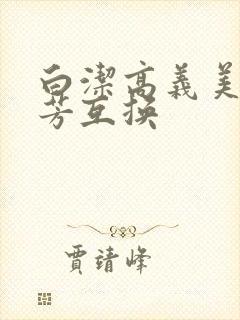 白潔高義美
芳互換
賈靖峰